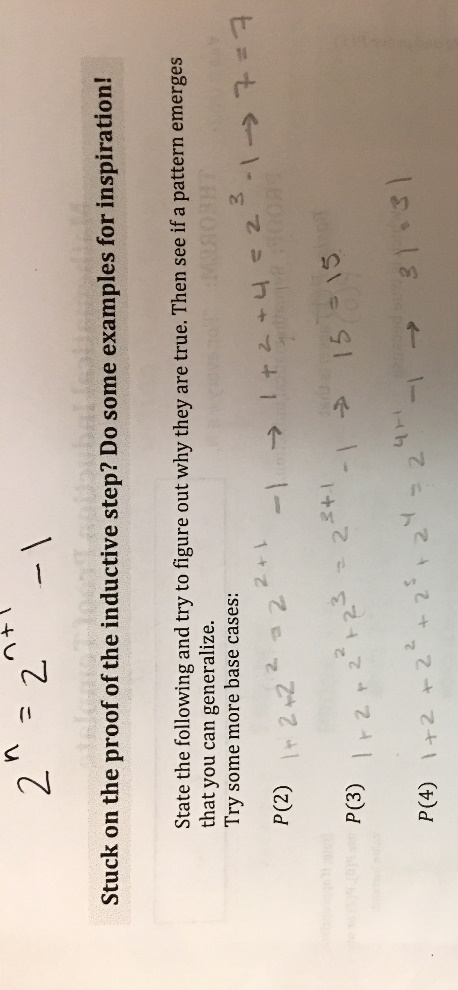 2ⁿ = 2ⁿ⁺¹ - 1
Stuck on the proof of the inductive step? Do some examples for inspiration!
State the following and try to figure out why they are true. Then see if a pattern emerges
that you can generalize.
Try some more base cases:
P(2) 1+2+2² = 2²⁺¹ - 1 → 1+2+4 = 2³-1 → 7=7
P(3) 1+2+2²+2³ = 2³⁺¹ - 1 → 15 = 15
P(4) 1+2+2²+2³+2⁴ = 2⁴⁺¹ - 1 → 31=31